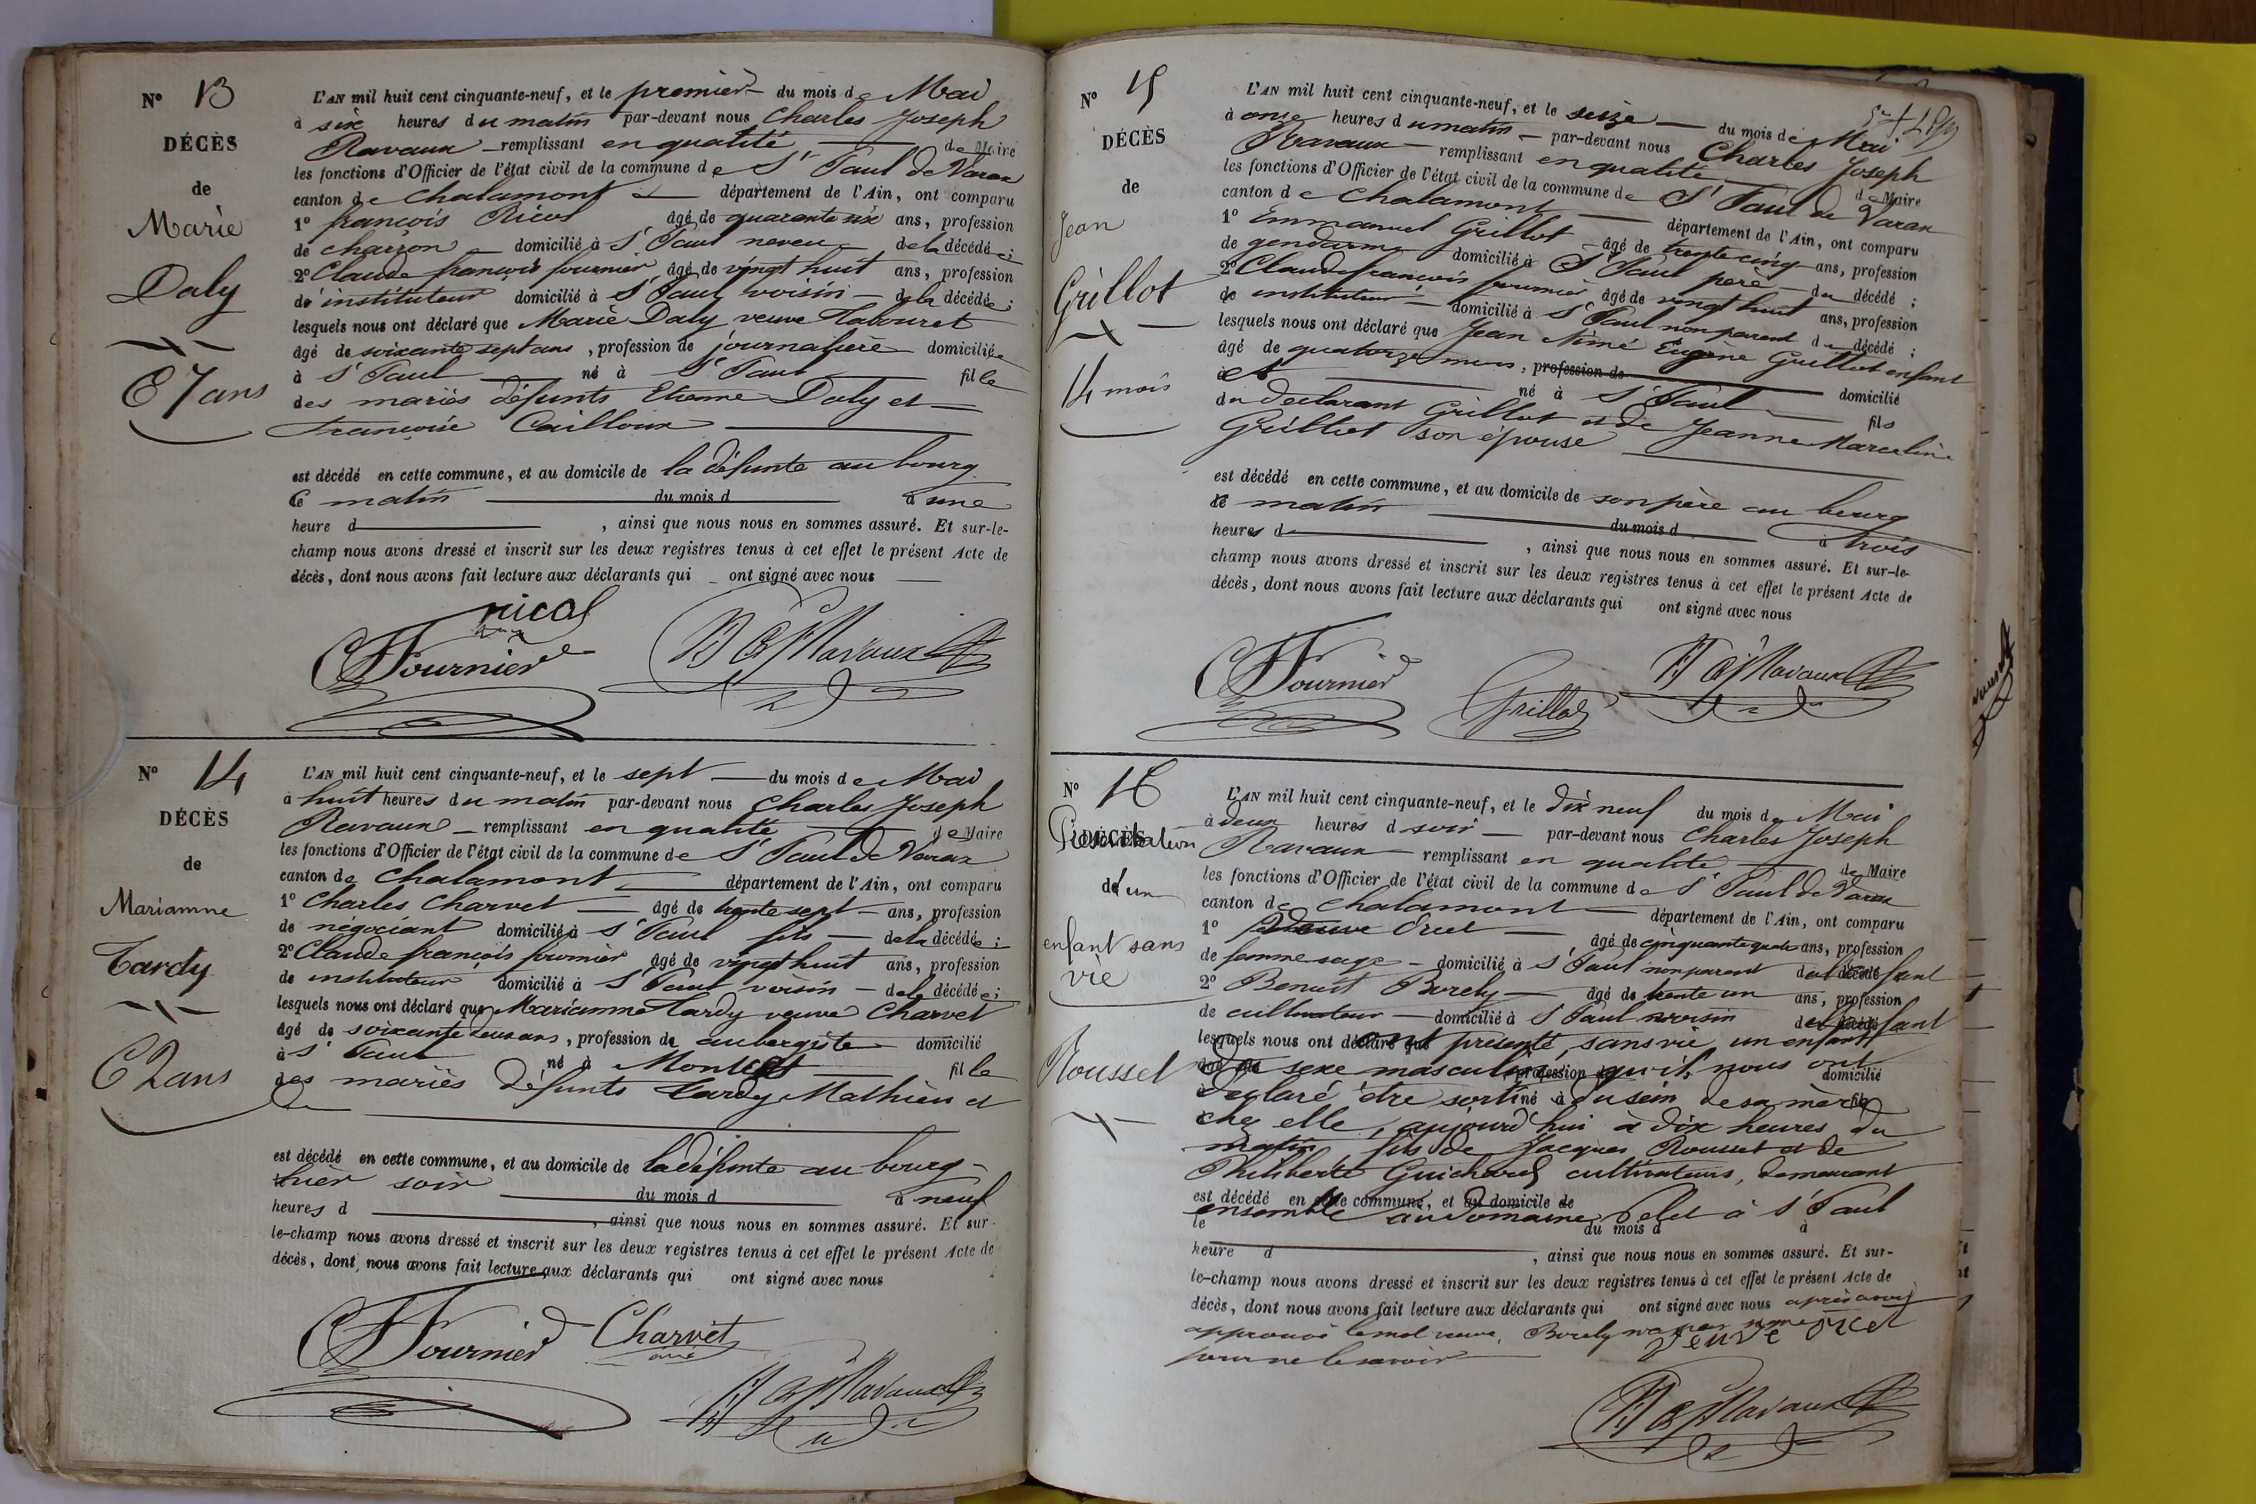 N° 13
DÉCÈS
de
Marie
Daly
67 ans
L'AN mil huit cent cinquante-neuf, et le premier du mois de Mai
à six heures du matin par-devant nous Charles Joseph
Ravaux remplissant en qualité de Maire
les fonctions d'Officier de l'état civil de la commune de St Paul de Varax
canton de Chalamont département de l'Ain, ont comparu
1° françois Nicol âgé de quarante six ans, profession
de charron domicilié à St Paul neveu de la décédée;
2° Claude françois fournier âgé de vingt huit ans, profession
d'instituteur domicilié à St Paul voisin de la décédée;
lesquels nous ont déclaré que Marie Daly veuve Labouret
âgé de soixante sept ans, profession de journalière domiciliée
à St Paul né à St Paul fille
des mariés défunts Etienne Daly et
françoise Cailloux
est décédé en cette commune, et au domicile de la défunte au bourg
Ce matin du mois d à une
heure d , ainsi que nous nous en sommes assuré. Et sur-le-
champ nous avons dressé et inscrit sur les deux registres tenus à cet effet le présent Acte de
décès, dont nous avons fait lecture aux déclarants qui ont signé avec nous
nicol
Fournier Ravaux
N° 14
DÉCÈS
de
Marianne
Tardy
62 ans
L'AN mil huit cent cinquante-neuf, et le sept du mois de Mai
à huit heures du matin par-devant nous Charles Joseph
Ravaux remplissant en qualité de Maire
les fonctions d'Officier de l'état civil de la commune de St Paul de Varax
canton de Chalamont département de l'Ain, ont comparu
1° Charles Charvet âgé de trente sept ans, profession
de négociant domicilié à St Paul fils de la décédée;
2° Claude françois fournier âgé de vingt huit ans, profession
de instituteur domicilié à St Paul voisin de la décédée;
lesquels nous ont déclaré que Marianne Tardy veuve Charvet
âgé de soixante deux ans, profession de aubergiste domicilié
à St Paul né à fille
des mariés défunts Tardy Mathieu et
De
est décédé en cette commune, et au domicile de la défunte au bourg
hier soir du mois d à neuf
heures d , ainsi que nous nous en sommes assuré. Et sur-
le-champ nous avons dressé et inscrit sur les deux registres tenus à cet effet le présent Acte de
décès, dont nous avons fait lecture aux déclarants qui ont signé avec nous
Fournier Charvet
Ravaux
N° 15
DÉCÈS
de
Jean
Grillot
14 mois
L'AN mil huit cent cinquante-neuf, et le seize du mois de Mai
à onze heures du matin par-devant nous Charles Joseph
Ravaux remplissant en qualité de Maire
les fonctions d'Officier de l'état civil de la commune de St Paul de Varax
canton de Chalamont département de l'Ain, ont comparu
1° Emmanuel Grillot âgé de trente cinq ans, profession
de gendarme domicilié à St Paul père du décédé;
2° Claude françois fournier âgé de vingt huit ans, profession
de instituteur domicilié à St Paul non parent du décédé;
lesquels nous ont déclaré que Jean Aimé Eugène Grillot enfant
âgé de quatorze mois, profession de domicilié
à né à St Paul fils
du déclarant Grillot et de Jeanne Marceline
Grillot son épouse
est décédé en cette commune, et au domicile de son père au bourg
ce matin du mois d à trois
heures d , ainsi que nous nous en sommes assuré. Et sur-le-
champ nous avons dressé et inscrit sur les deux registres tenus à cet effet le présent Acte de
décès, dont nous avons fait lecture aux déclarants qui ont signé avec nous
Fournier Grillot Ravaux
N° 16
DÉCÈS
Présentation
d'un
enfant sans
vie
Rousset
L'AN mil huit cent cinquante-neuf, et le dix neuf du mois de Mai
à deux heures d soir par-devant nous Charles Joseph
Ravaux remplissant en qualité de Maire
les fonctions d'Officier de l'état civil de la commune de St Paul de Varax
canton de Chalamont département de l'Ain, ont comparu
1° veuve Orcet âgé de cinquante quatre ans, profession
de femme sage domicilié à St Paul non parent de l'enfant
2° Benoit Borely âgé de trente un ans, profession
de cultivateur domicilié à St Paul voisin de l'enfant
lesquels nous ont déclaré que ont présenté, sans vie un enfant
du sexe masculin, profession qu'il nous ont domicilié
déclaré être sorti né à du sein de sa mère fils
chez elle, aujourd'hui à dix heures du
matin fils de Jacques Rousset et de
Philiberte Guichard cultivateurs, demeurant
est décédé en cette commune, et au domicile de
ensemble au domaine Pelet à St Paul
le du mois d à
heure d , ainsi que nous nous en sommes assuré. Et sur-
le-champ nous avons dressé et inscrit sur les deux registres tenus à cet effet le présent Acte de
décès, dont nous avons fait lecture aux déclarants qui ont signé avec nous après avoir
approuvé le mot veuve, Borely
pour ne le savoir
veuve orcet
Ravaux